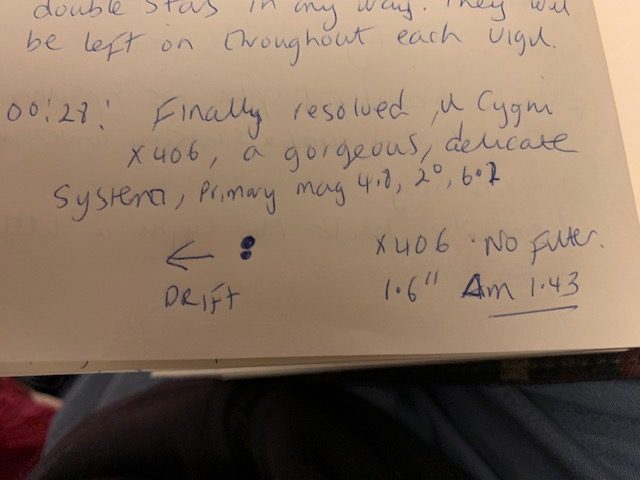 double stars in any way. They will
be left on throughout each vigil.
00:28: Finally resolved, μ Cygni
x406, a gorgeous, delicate
system, Primary mag 4.8, 2°, 6.2
← : x406 · No filter.
DRIFT 1.6" Δm 1.43